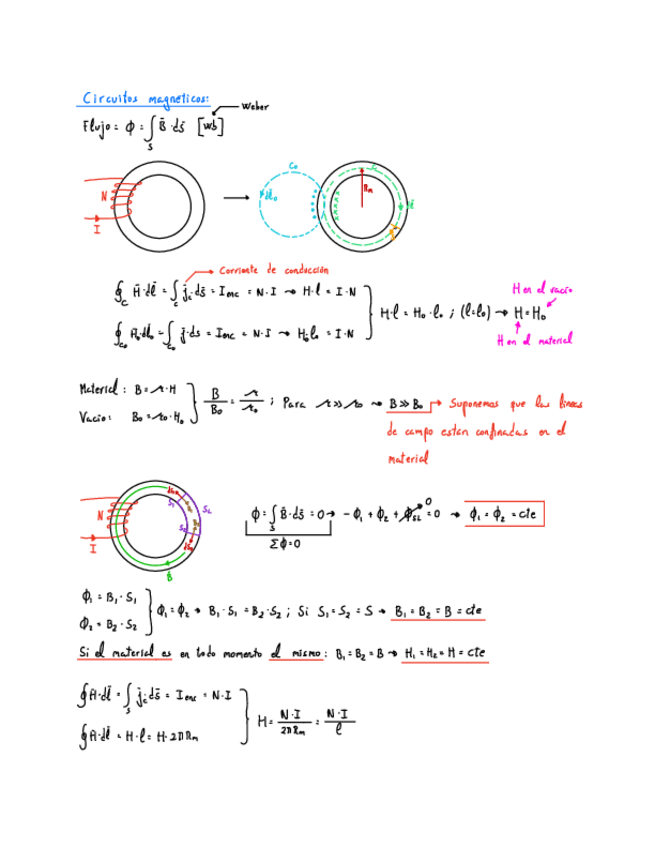 Circuitos magnéticos:
Flujo = ϕ = ∫_S B̄·ds̄ [Wb] → Weber
N
I
C₀
dl̄₀
C
Rₘ
dl̄
→ Corriente de conducción
∮_C H̄·dl̄ = ∫_C j̄c·ds̄ = Ienc = N·I → H·l = I·N
∮_C₀ H̄₀·dl̄₀ = ∫_C₀ j̄·ds = Ienc = N·I → H₀l₀ = I·N
H·l = H₀·l₀ ; (l=l₀) → H=H₀
H en el vacío
H en el material
Material: B=μ·H
Vacío: B₀=μ₀·H₀
B/B₀ = μ/μ₀ ; Para μ>>μ₀ → B>>B₀ → Suponemos que las líneas
de campo están confinadas en el
material
N
I
S₁
S_L
S₂
B̄
ϕ=∫_S B̄·ds̄=0 → -ϕ₁+ϕ₂+ϕ_SL=0 → ϕ₁=ϕ₂=cte
0
Σϕ=0
ϕ₁=B₁·S₁
ϕ₂=B₂·S₂
ϕ₁=ϕ₂ → B₁·S₁=B₂·S₂ ; Si S₁=S₂=S → B₁=B₂=B=cte
Si el material es en todo momento el mismo: B₁=B₂=B → H₁=H₂=H=cte
∮H̄·dl̄ = ∫_S j̄c·ds̄ = Ienc = N·I
∮H̄·dl̄ = H·l = H·2πRₘ
H = N·I/2πRₘ = N·I/l